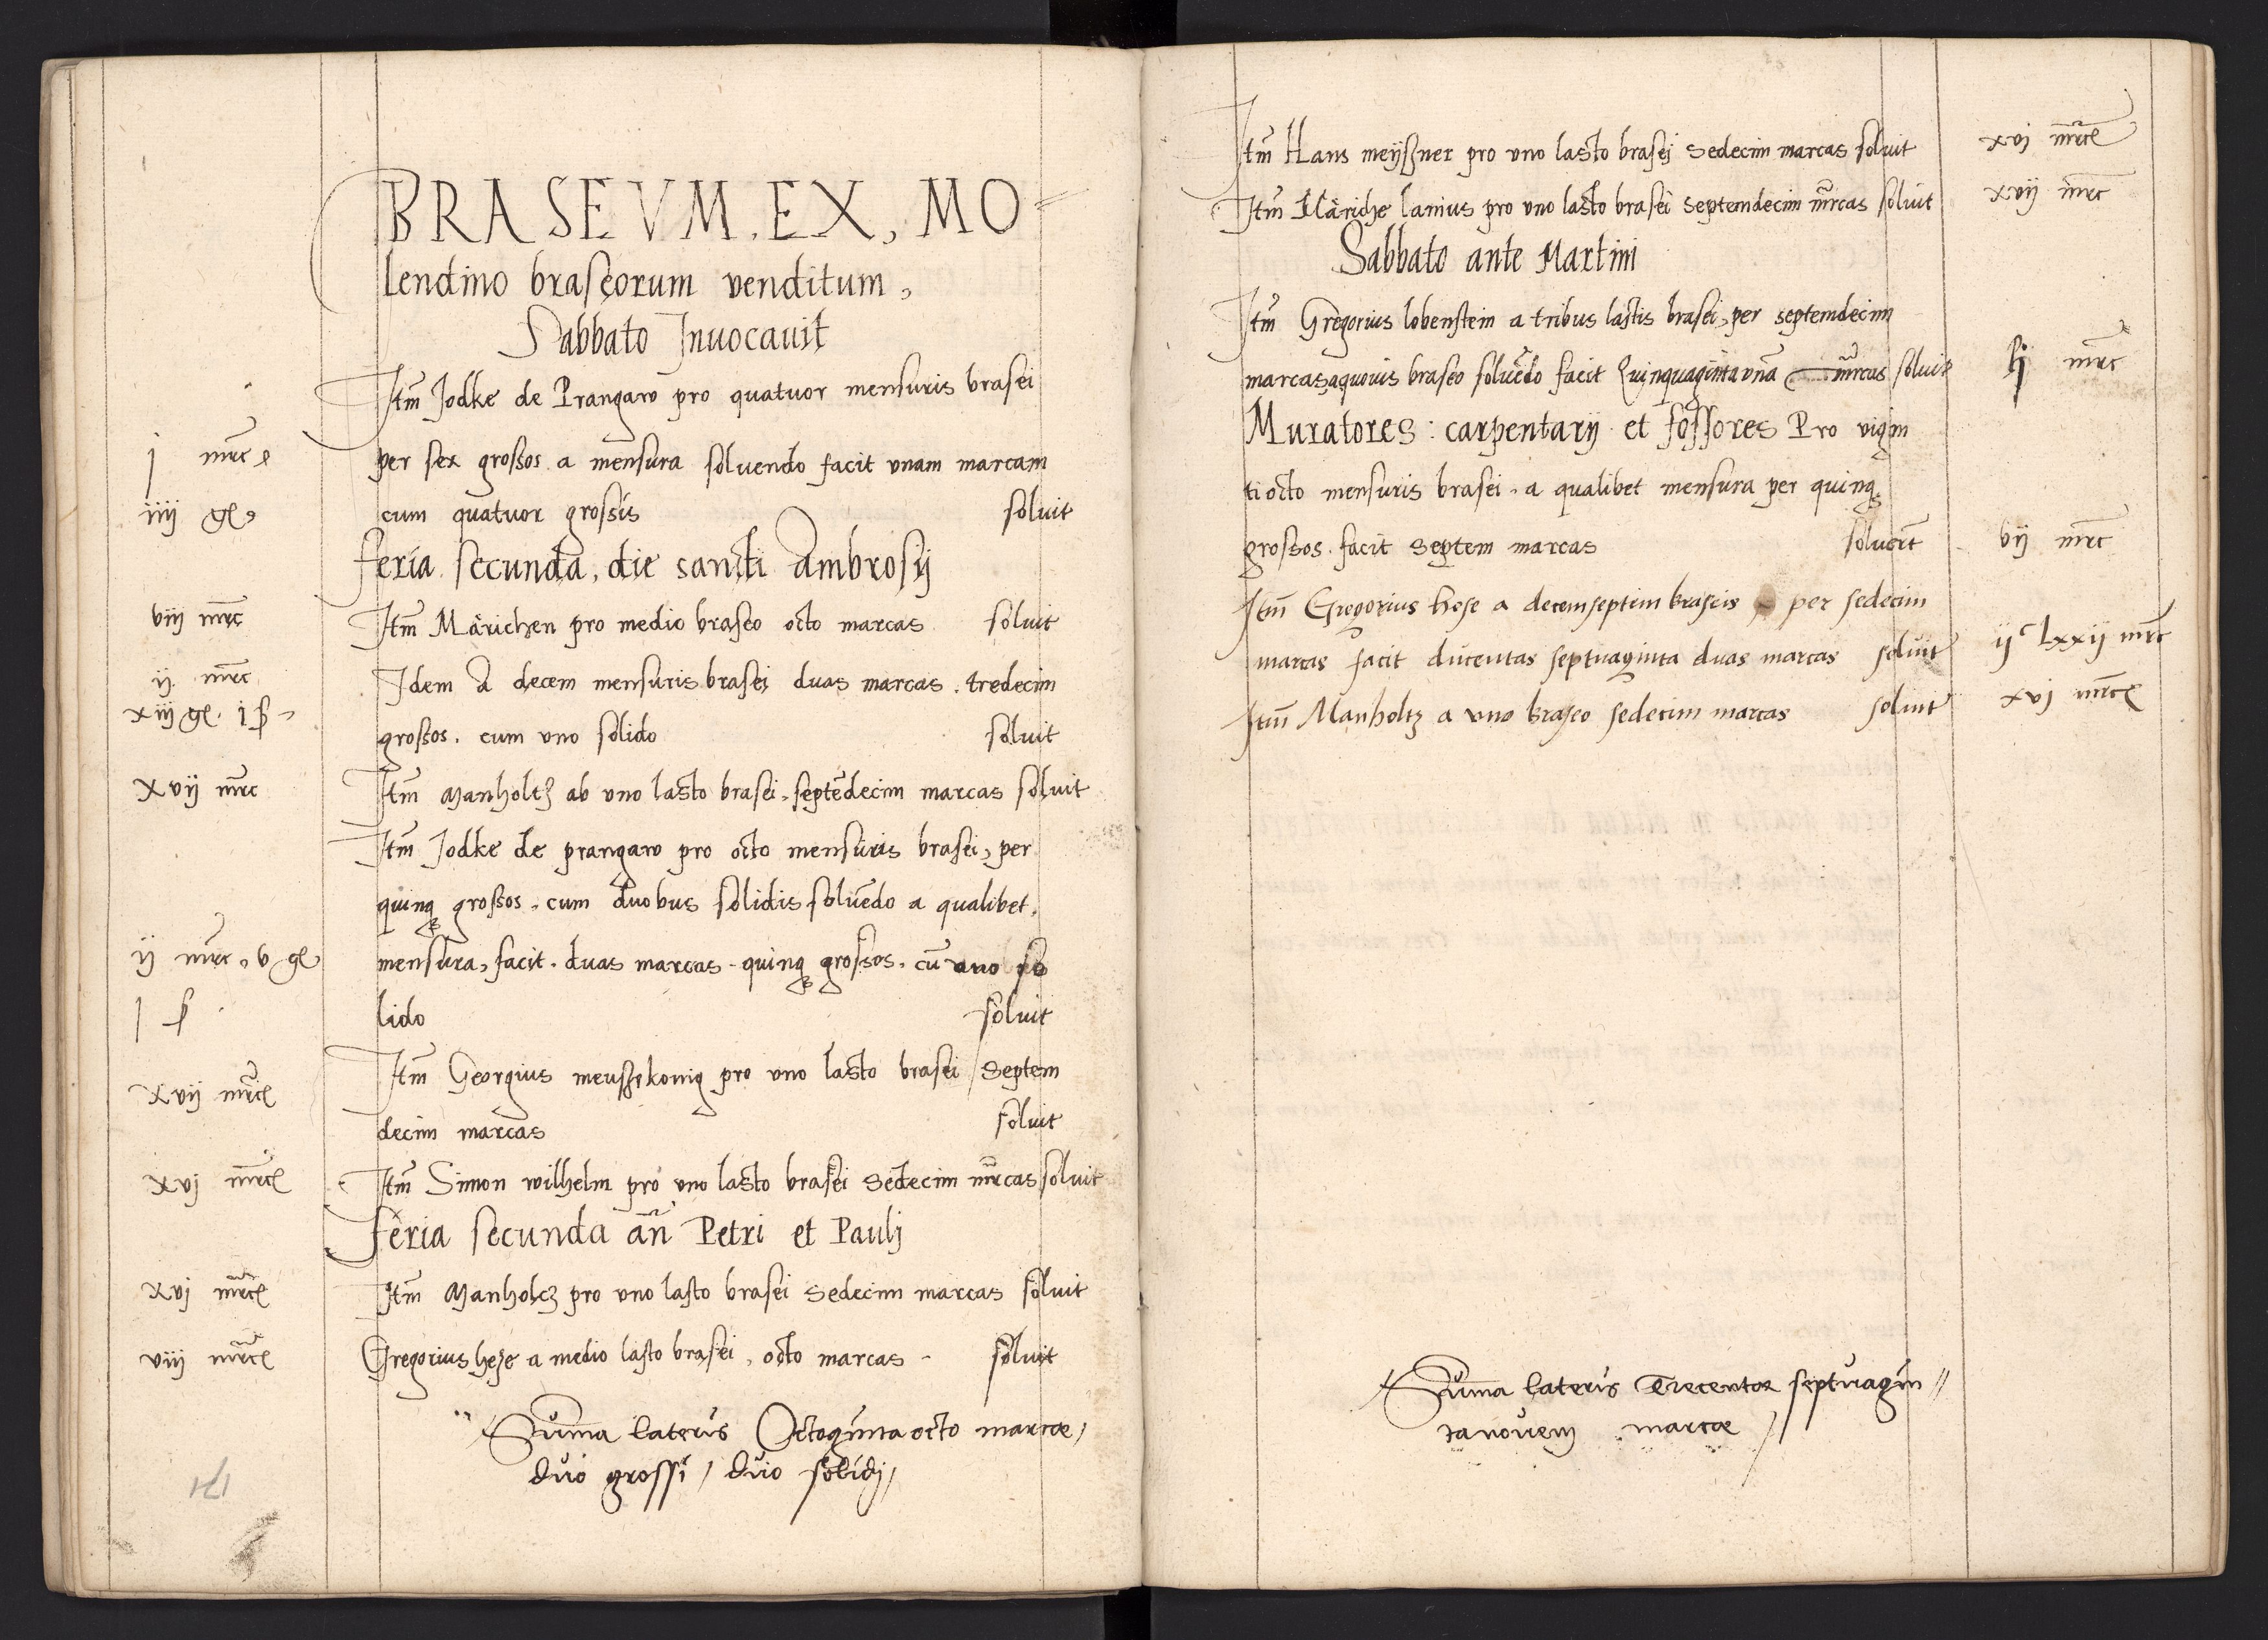 BRASEVM. EX, MO-
lendino braseorum venditum,
Sabbato Invocavit
Itm̄ Jodke de Prangaw pro quatuor mensuris brasei
j mrc per sex grossos a mensura soluendo facit vnam marcam
iiij gl cum quatuor grossis soluit
feria secunda, die sancti Ambrosij
viij mrc Itm̄ Märichen pro medio braseo octo marcas soluit
ij mrc Idem a decem mensuris brasei duas marcas. tredecim
xiij gl. j ß grossos. cum vno solido soluit
xvij mrc Itm̄ Manholtz ab vno lasto brasei, septēdecim marcas soluit
Itm̄ Jodke de prangaw pro octo mensuris brasei, per
quinq grossos. cum duobus solidis soluēdo a qualibet.
ij mrc, v gl mensura, facit. duas marcas. quinq grossos. cū vno so
j ß lido soluit
xvij mrc Itm̄ Georgius meusżkonig pro vno lasto brasei septem
decim marcas soluit
xvj mrc Itm̄ Simon wilhelm pro vno lasto brasei sedecim mrcas soluit
feria secunda añ Petri et Pauli
xvj mrc Itm̄ Manholcz pro vno lasto brasei sedecim marcas soluit
viij mrc Gregorius heże a medio lasto brasei, octo marcas - soluit
Suma lateris Octoginta octo marcæ/
duo grossi/ duo solidj/
171
Itm̄ Hans meyßner pro vno lasto brasej sedecim marcas soluit xvj mrc
Itm̄ Märiche lanius pro vno lasto brasei septemdecim mrcas soluit xvij mrc
Sabbato ante Martini
Itm̄ Gregorius lobenstein a tribus lastis brasei, per septemdecim
marcas, aquouis braseo soluēdo facit Quinquaginta vnā mrcas soluit lj mrc
Muratores: carpentarij et fossores Pro vigin
ti octo mensuris brasei. a qualibet mensura per quinq
grossos. facit septem marcas soluert vij mrc
Itm̄ Gregorius hese a decemseptim braseis per sedecim
marcas facit ducentas septuaginta duas marcas soluit ijc Lxxij mrc
Itm̄ Manholtz a vno braseo sedecim marcas soluit xvj mrc
Suma lateris Trecentæ septuagin//
tanouem marcæ/